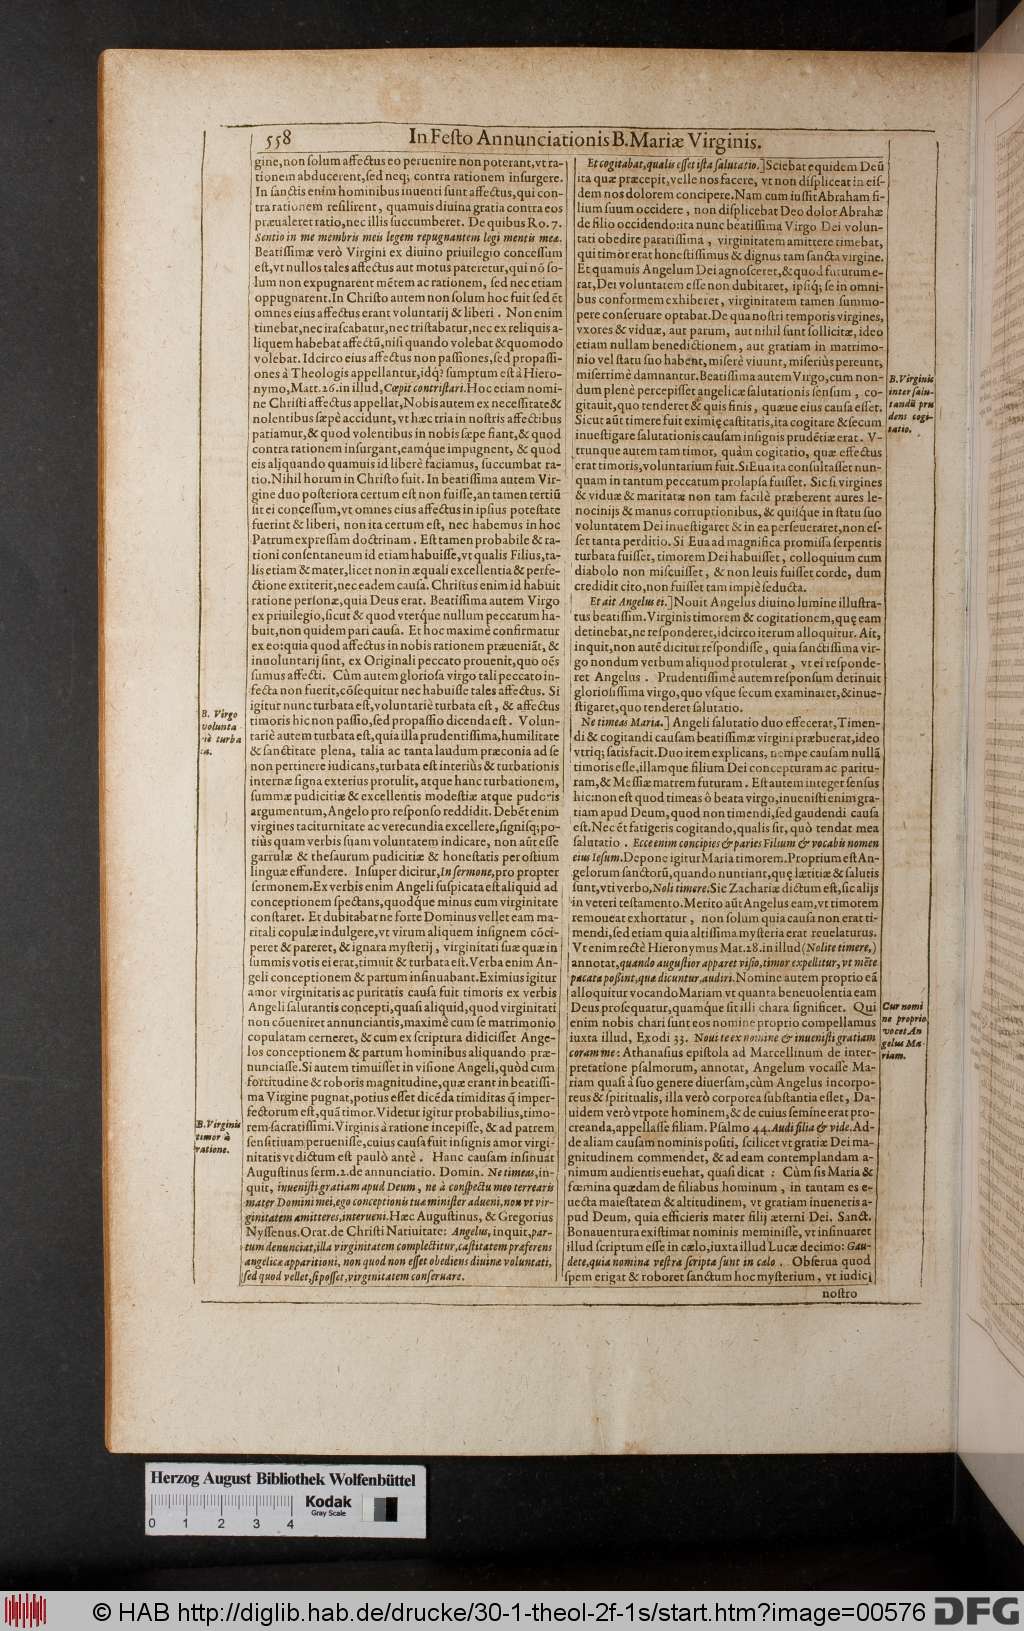 558
In Festo Annunciationis B. Mariæ Virginis.
gine, non solum affectus eo peruenire non poterant, vt ra-
tionem abducerent, sed neq; contra rationem insurgere.
In sanctis enim hominibus inuenti sunt affectus, qui con-
tra rationem resilirent, quamuis diuina gratia contra eos
præualeret ratio, nec illis succumberet. De quibus Ro. 7.
Sentio in me membris meis legem repugnantem legi mentis meæ.
Beatissimæ verò Virgini ex diuino priuilegio concessum
est, vt nullos tales affectus aut motus pateretur, qui nō so-
lum non expugnarent mētem ac rationem, sed nec etiam
oppugnarent. In Christo autem non solum hoc fuit sed ēt
omnes eius affectus erant voluntarij & liberi. Non enim
timebat, nec irascabatur, nec tristabatur, nec ex reliquis a-
liquem habebat affectū, nisi quando volebat & quomodo
volebat. Idcirco eius affectus non passiones, sed propassi-
ones à Theologis appellantur, idq; sumptum est à Hiero-
nymo, Matt. 26. in illud, Cœpit contristari. Hoc etiam nomi-
ne Christi affectus appellat, Nobis autem ex necessitate &
nolentibus sæpè accidunt, vt hæc tria in nostris affectibus
patiamur, & quod volentibus in nobis sæpe fiant, & quod
contra rationem insurgant, eamque impugnent, & quod
eis aliquando quamuis id liberè faciamus, succumbat ra-
tio. Nihil horum in Christo fuit. In beatissima autem Vir-
gine duo posteriora certum est non fuisse, an tamen tertiū
sit ei concessum, vt omnes eius affectus in ipsius potestate
fuerint & liberi, non ita certum est, nec habemus in hoc
Patrum expressam doctrinam. Est tamen probabile & ra-
tioni consentaneum id etiam habuisse, vt qualis Filius, ta-
lis etiam & mater, licet non in æquali excellentia & perfe-
ctione extiterit, nec eadem causa. Christus enim id habuit
ratione personæ, quia Deus erat. Beatissima autem Virgo
ex priuilegio, sicut & quod vterque nullum peccatum ha-
buit, non quidem pari causa. Et hoc maximè confirmatur
ex eo: quia quod affectus in nobis rationem præueniāt, &
inuoluntarij sint, ex Originali peccato prouenit, quo oēs
sumus affecti. Cùm autem gloriosa virgo tali peccato in-
fecta non fuerit, cōsequitur nec habuisse tales affectus. Si
igitur nunc turbata est, voluntariè turbata est, & affectus
timoris hic non passio, sed propassio dicenda est. Volun-
tariè autem turbata est, quia illa prudentissima, humilitate
& sanctitate plena, talia ac tanta laudum præconia ad se
non pertinere iudicans, turbata est interiùs & turbationis
internæ signa exterius protulit, atque hanc turbationem,
summæ pudicitiæ & excellentis modestiæ atque pudoris
argumentum, Angelo pro responso reddidit. Debēt enim
virgines taciturnitate ac verecundia excellere, signisq; po-
tiùs quam verbis suam voluntatem indicare, non aūt esse
garrulæ & thesaurum pudicitiæ & honestatis per ostium
linguæ effundere. Insuper dicitur, In sermone, pro propter
sermonem. Ex verbis enim Angeli suspicata est aliquid ad
conceptionem spectans, quodque minus cum virginitate
constaret. Et dubitabat ne forte Dominus vellet eam ma-
ritali copulæ indulgere, vt virum aliquem insignem cōci-
peret & pareret, & ignara mysterij, virginitati suæ quæ in
summis votis ei erat, timuit & turbata est. Verba enim An-
geli conceptionem & partum insinuabant. Eximius igitur
amor virginitatis ac puritatis causa fuit timoris ex verbis
Angeli salutantis concepti, quasi aliquid, quod virginitati
non cōueniret annunciantis, maximè cum se matrimonio
copulatam cerneret, & cum ex scriptura didicisset Ange-
los conceptionem & partum hominibus aliquando præ-
nunciasse. Si autem timuisset in visione Angeli, quòd cum
fortitudine & roboris magnitudine, quæ erant in beatissi-
ma Virgine pugnat, potius esset dicēda timiditas q̄ imper-
fectorum est, quā timor. Videtur igitur probabilius, timo-
rem sacratissimi. Virginis à ratione incepisse, & ad patrem
sensitiuam peruenisse, cuius causa fuit insignis amor virgi-
nitatis vt dictum est paulò antè. Hanc causam insinuat
Augustinus serm. 2. de annunciatio. Domin. Ne timeas, in-
quit, inuenisti gratiam apud Deum, ne à conspectu meo terrearis
mater Domini mei, ego conceptionis tuæ minister adueni, non vt vir-
ginitatem amitteres, interueni. Hæc Augustinus, & Gregorius
Nyssenus. Orat. de Christi Natiuitate: Angelus, inquit, par-
tum denunciat, illa virginitatem complectitur, castitatem præferens
angelicæ apparitioni, non quod non esset obediens diuinæ voluntati,
sed quod vellet, si posset, virginitatem conseruare.
B. Virgo
volunta
riè turba
ta.
B. Virginis
timor à
ratione.
Et cogitabat, qualis esset ista salutatio.] Sciebat equidem Deū
ita quæ præcepit, velle nos facere, vt non displiceat in eis-
dem nos dolorem concipere. Nam cum iussit Abraham fi-
lium suum occidere, non displicebat Deo dolor Abrahæ
de filio occidendo: ita nunc beatissima Virgo Dei volun-
tati obedire paratissima, virginitatem amittere timebat,
qui timor erat honestissimus & dignus tam sancta virgine.
Et quamuis Angelum Dei agnosceret, & quod futurum e-
rat, Dei voluntatem esse non dubitaret, ipsiq; se in omni-
bus conformem exhiberet, virginitatem tamen summo-
pere conseruare optabat. De qua nostri temporis virgines,
vxores & viduæ, aut parum, aut nihil sunt sollicitæ, ideo
etiam nullam benedictionem, aut gratiam in matrimo-
nio vel statu suo habent, miserè viuunt, miseriùs pereunt,
miserrimè damnantur. Beatissima autem Virgo, cum non-
dum plenè percepisset angelicæ salutationis sensum, co-
gitauit, quo tenderet & quis finis, quæue eius causa esset.
Sicut aūt timere fuit eximię castitatis, ita cogitare & secum
inuestigare salutationis causam insignis prudētiæ erat. V-
trunque autem tam timor, quàm cogitatio, quæ effectus
erat timoris, voluntarium fuit. Si Eua ita consultasset nun-
quam in tantum peccatum prolapsa fuisset. Sic si virgines
& viduæ & maritatæ non tam facilè præberent aures le-
nocinijs & manus corruptionibus, & quisque in statu suo
voluntatem Dei inuestigaret & in ea perseueraret, non es-
set tanta perditio. Si Eua ad magnifica promissa serpentis
turbata fuisset, timorem Dei habuisset, colloquium cum
diabolo non miscuisset, & non leuis fuisset corde, dum
credidit cito, non fuisset tam impiè seducta.
Et ait Angelus ei.] Nouit Angelus diuino lumine illustra-
tus beatissim. Virginis timorem & cogitationem, quę eam
detinebat, ne responderet, idcirco iterum alloquitur. Ait,
inquit, non autē dicitur respondisse, quia sanctissima vir-
go nondum verbum aliquod protulerat, vt ei responde-
ret Angelus. Prudentissimè autem responsum detinuit
gloriosissima virgo, quo vsque secum examinaret, & inue-
stigaret, quo tenderet salutatio.
Ne timeas Maria.] Angeli salutatio duo effecerat, Timen-
di & cogitandi causam beatissimæ virgini præbuerat, ideo
vtriq; satisfacit. Duo item explicans, nempe causam nullā
timoris esse, illamque filium Dei concepturam ac paritu-
ram, & Messiæ matrem futuram. Est autem integer sensus
hic: non est quod timeas ô beata virgo, inuenisti enim gra-
tiam apud Deum, quod non timendi, sed gaudendi causa
est. Nec ēt fatigeris cogitando, qualis sit, quò tendat mea
salutatio. Ecce enim concipies & paries Filium & vocabis nomen
eius Iesum. Depone igitur Maria timorem. Proprium est An-
gelorum sanctorū, quando nuntiant, quę lætitiæ & salutis
sunt, vti verbo, Noli timere. Sic Zachariæ dictum est, sic alijs
in veteri testamento. Merito aūt Angelus eam, vt timorem
remoueat exhortatur, non solum quia causa non erat ti-
mendi, sed etiam quia altissima mysteria erat reuelaturus.
Vt enim rectè Hieronymus Mat. 28. in illud (Nolite timere,)
annotat, quando augustior apparet visio, timor expellitur, vt mēte
pacata possint, quæ dicuntur, audiri. Nomine autem proprio eā
alloquitur vocando Mariam vt quanta beneuolentia eam
Deus prosequatur, quamque sit illi chara significet. Qui
enim nobis chari sunt eos nomine proprio compellamus
iuxta illud, Exodi 33. Noui te ex nomine & inuenisti gratiam
coram me: Athanasius epistola ad Marcellinum de inter-
pretatione psalmorum, annotat, Angelum vocasse Ma-
riam quasi à suo genere diuersam, cùm Angelus incorpo-
reus & spiritualis, illa verò corporea substantia esset, Da-
uidem verò vtpote hominem, & de cuius semine erat pro-
creanda, appellasse filiam. Psalmo 44. Audi filia & vide. Ad-
de aliam causam nominis positi, scilicet vt gratiæ Dei ma-
gnitudinem commendet, & ad eam contemplandam a-
nimum audientis euehat, quasi dicat: Cùm sis Maria &
fœmina quædam de filiabus hominum, in tantam es e-
uecta maiestatem & altitudinem, vt gratiam inueneris a-
pud Deum, quia efficieris mater filij æterni Dei. Sanct.
Bonauentura existimat nominis meminisse, vt insinuaret
illud scriptum esse in cælo, iuxta illud Lucæ decimo: Gau-
dete, quia nomina vestra scripta sunt in cælo. Obserua quod
spem erigat & roboret sanctum hoc mysterium, vt iudici
nostro
B. Virginis
inter salu-
tandū pru
dens cogi-
tatio.
Cur nomi
ne proprio
vocet An
gelus Ma-
riam.
Herzog August Bibliothek Wolfenbüttel
Kodak
Gray Scale
0 1 2 3 4
© HAB http://diglib.hab.de/drucke/30-1-theol-2f-1s/start.htm?image=00576
DFG